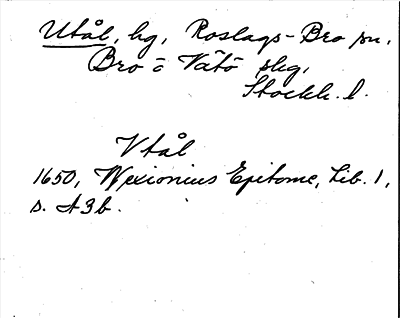 Utål, hg, Roslags-Bro sn,
Bro o Vätö skg,
Stockh. l.
Vtål
1650, Wexionius Epitome, Lib. 1,
s. A3b.